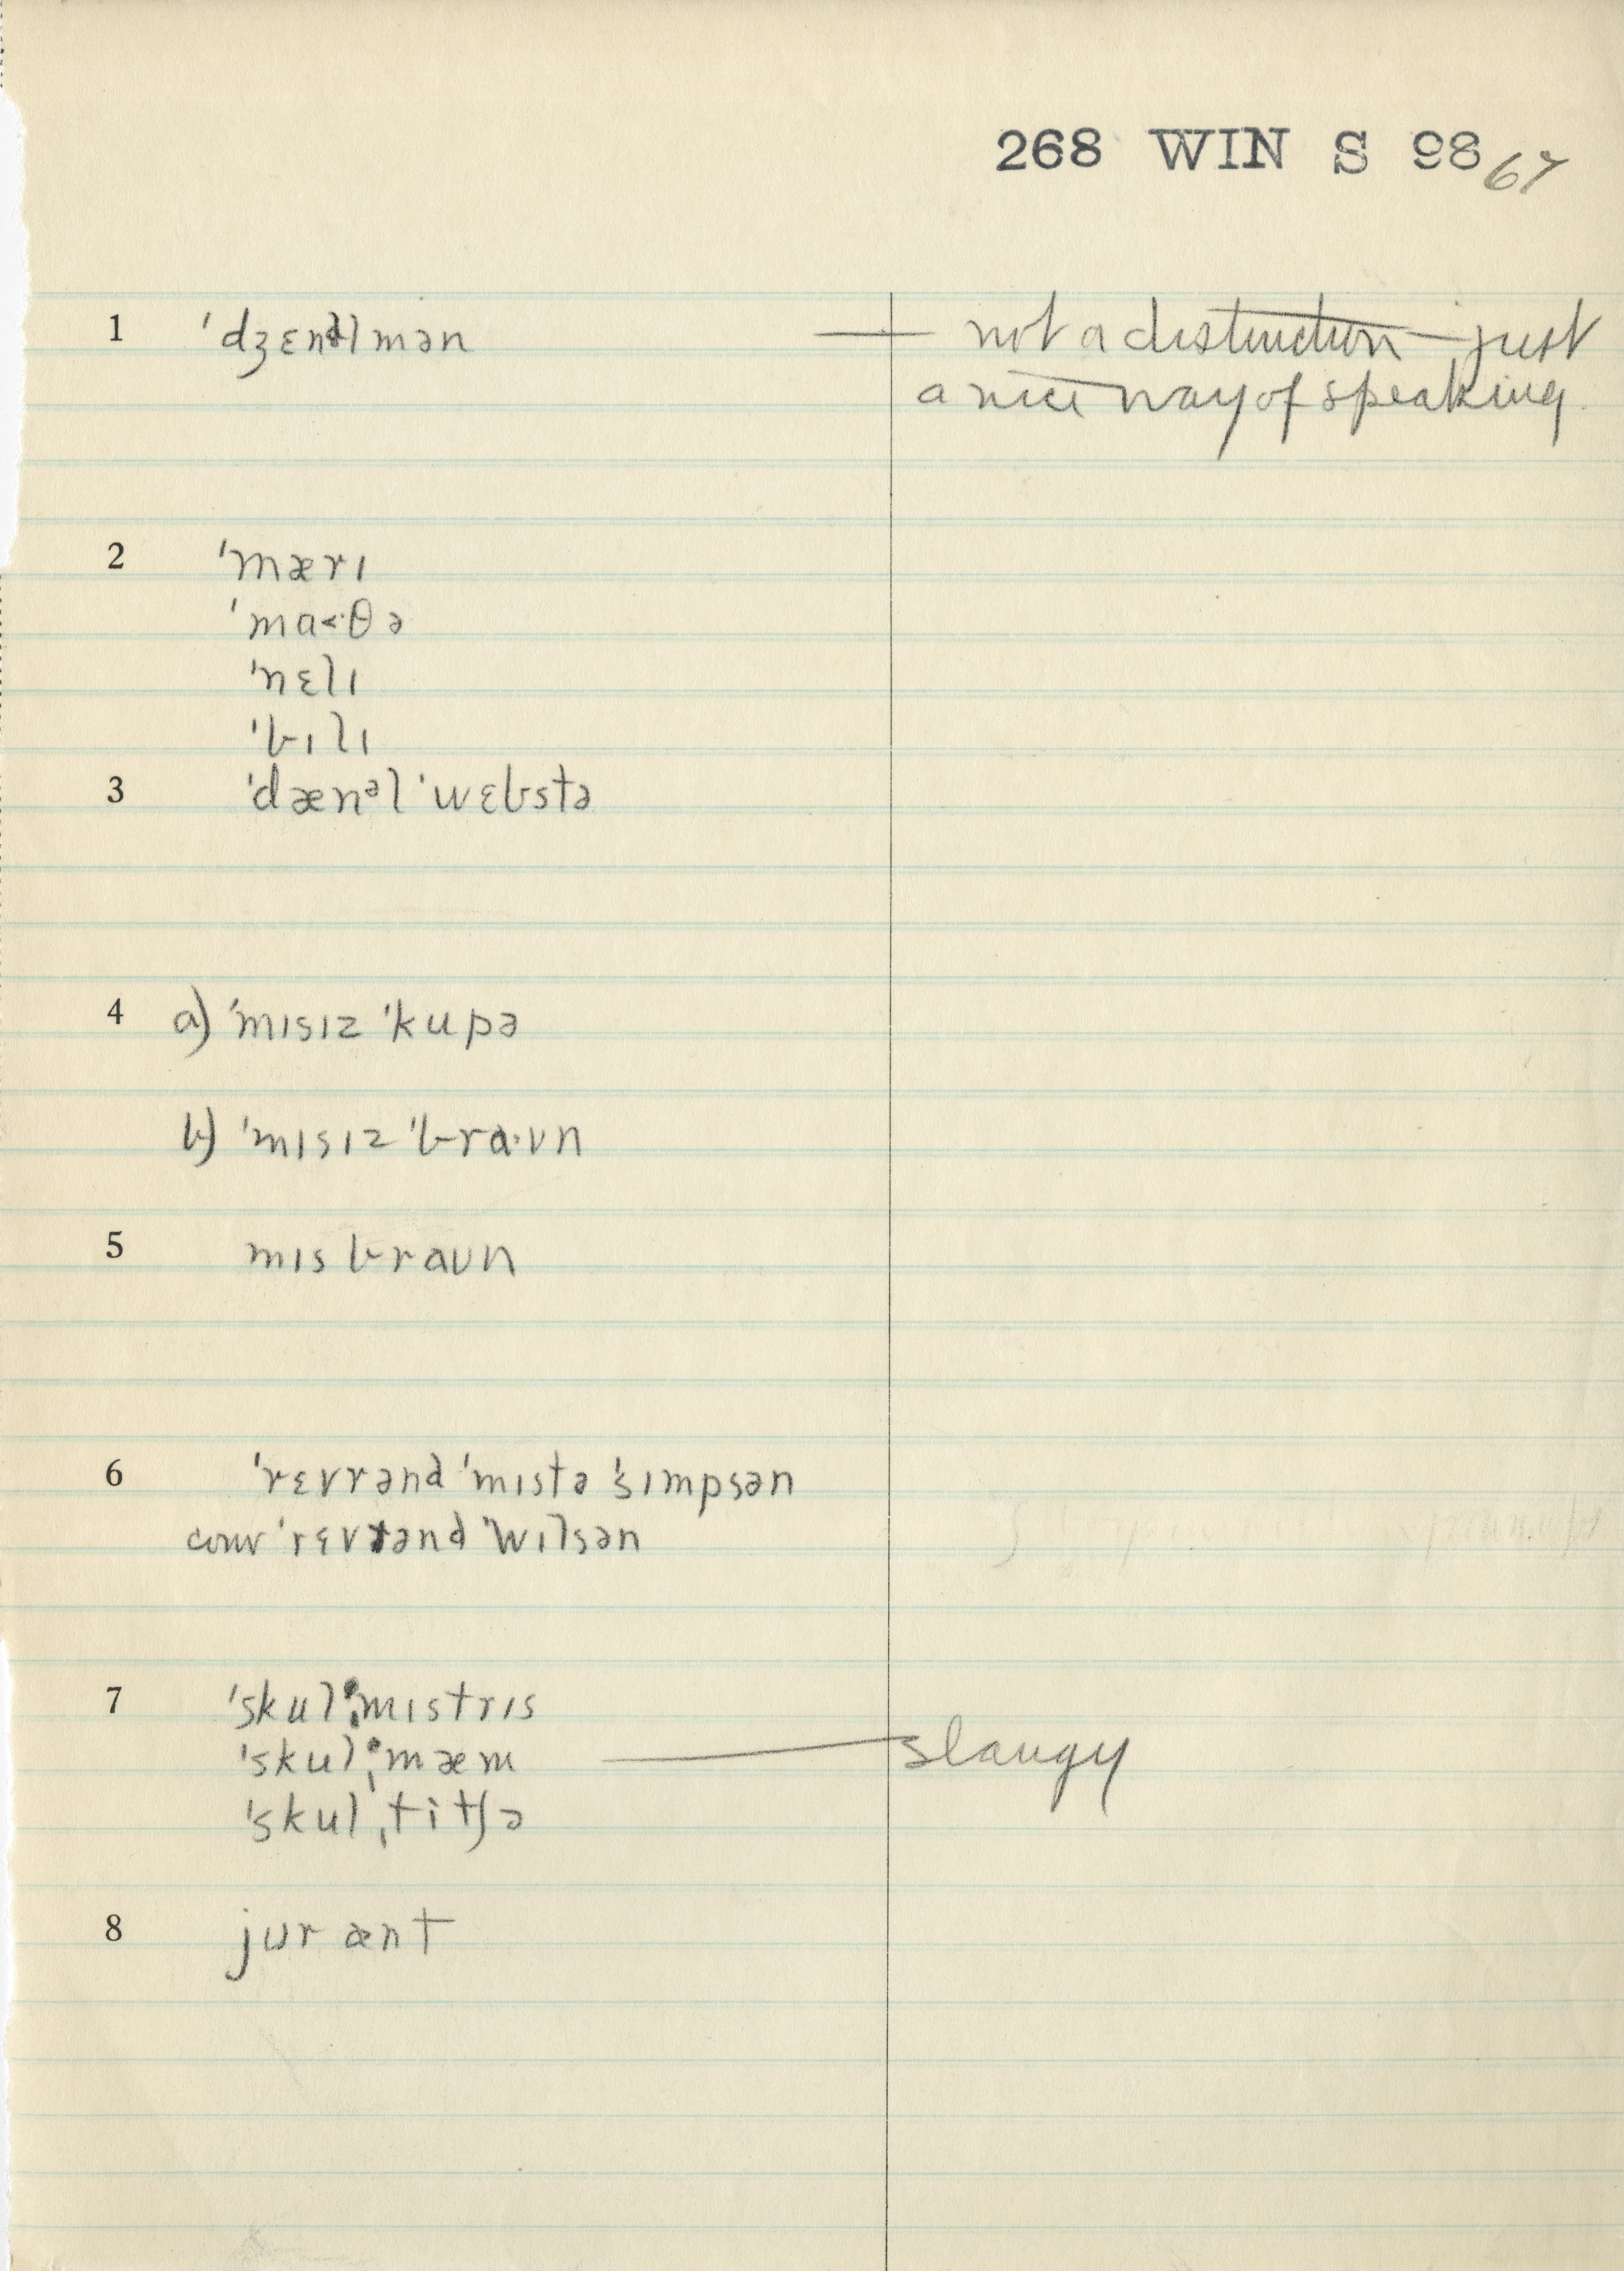 268 WIN S 98 67
1 ˈdʒɛntəlmən — not a distinction — just
a nice way of speaking.
2 ˈmærɪ
ˈma<·θə
ˈnɛlɪ
ˈbɪlɪ
3 ˈdænᵊl ˈwɛbstə
4 a) ˈmɪsɪz ˈkupə
b) ˈmɪsɪz ˈbra·ʊn
5 mɪs braʊn
6 ˈrɛvrənd ˈmɪstə ˈsɪmpsən
conv ˈrɛvrənd ˈwɪlsən
7 ˈskulˌmɪstrɪs
ˈskulˌmæm — slangy
ˈskulˌtitʃə
8 jʊr ænt